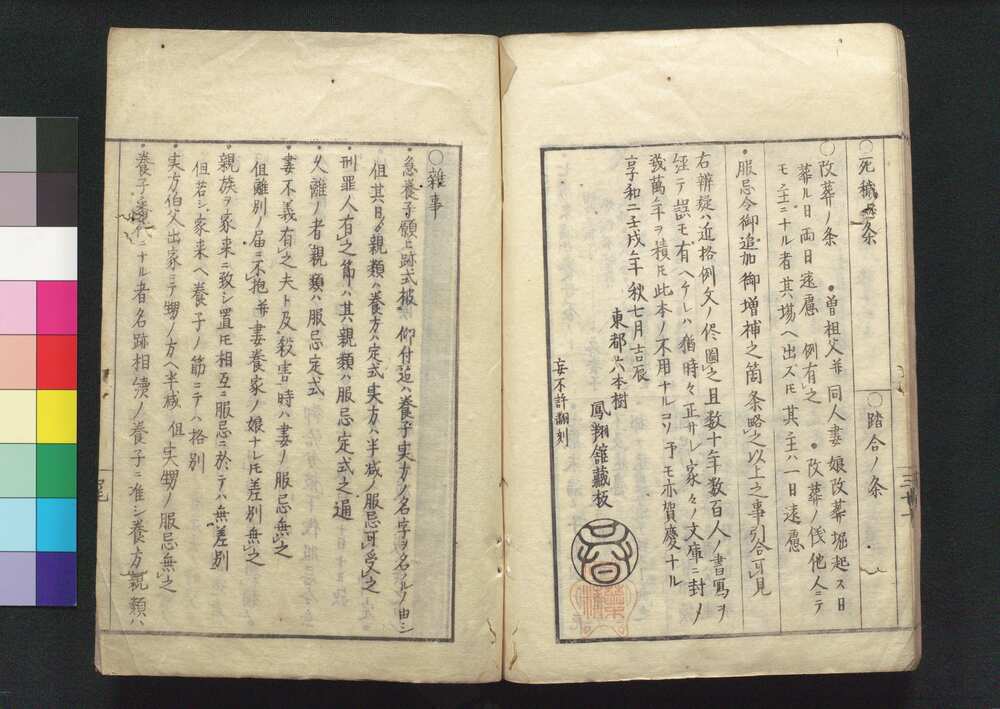 ○死穢ノ条
○踏合ノ条
○改葬ノ条 ●曽祖父并同人妻娘改葬堀起ス日
葬ル日両日遠慮 例有之 ●改葬ノ伐他人ニテ
モ主ニナル者其場ヘ出ズモ其主ハ一日遠慮
●服忌令御追加御増補之箇条略之以上之事引合可見
右辨疑ハ近格例文ノ侭圖之且数十年数百人ノ書寫ヲ
経テ誤モ有ヘケレハ猶時々正サレ家々ノ文庫ニ封ノ
幾萬年ヲ積モ此本ノ不用ナルコソ予モ亦賀慶ナル
享和二壬戌年秋七月吉辰
東都六本樹
鳳翔館蔵板
妄不許翻刻
三十一
○雑事
●急養子願上跡式被 仰付迠ハ養子実方ノ名字ヲ名ノル由シ
但其日ゟ親類ハ養方ハ定式実方ハ半减ノ服忌可受之
●刑罪人有之節ハ其親類ハ服忌定式之通
●久離ノ者親類ハ服忌定式
●妻不義有之夫ト及殺害時ハ妻ノ服忌無之
但離別ノ届ニ不抱并妻養家ノ娘ナレモ差別無之
●親族ヲ家来ニ致シ置モ相互ニ服忌ニ於テハ無差別
但若シ家来ヘ養子ノ節ニテハ格別
●実方伯父出家ニテ甥ノ方ヘ半减 但シ実甥ノ服忌無之
●養子養代ニナル者名跡相續ノ養子ニ准シ養方親類ハ
尾